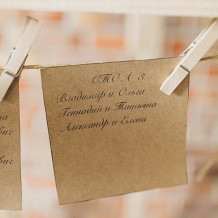 СТОЛ 3
Владимир и Ольга
Геннадий и Татьяна
Александр и Елена